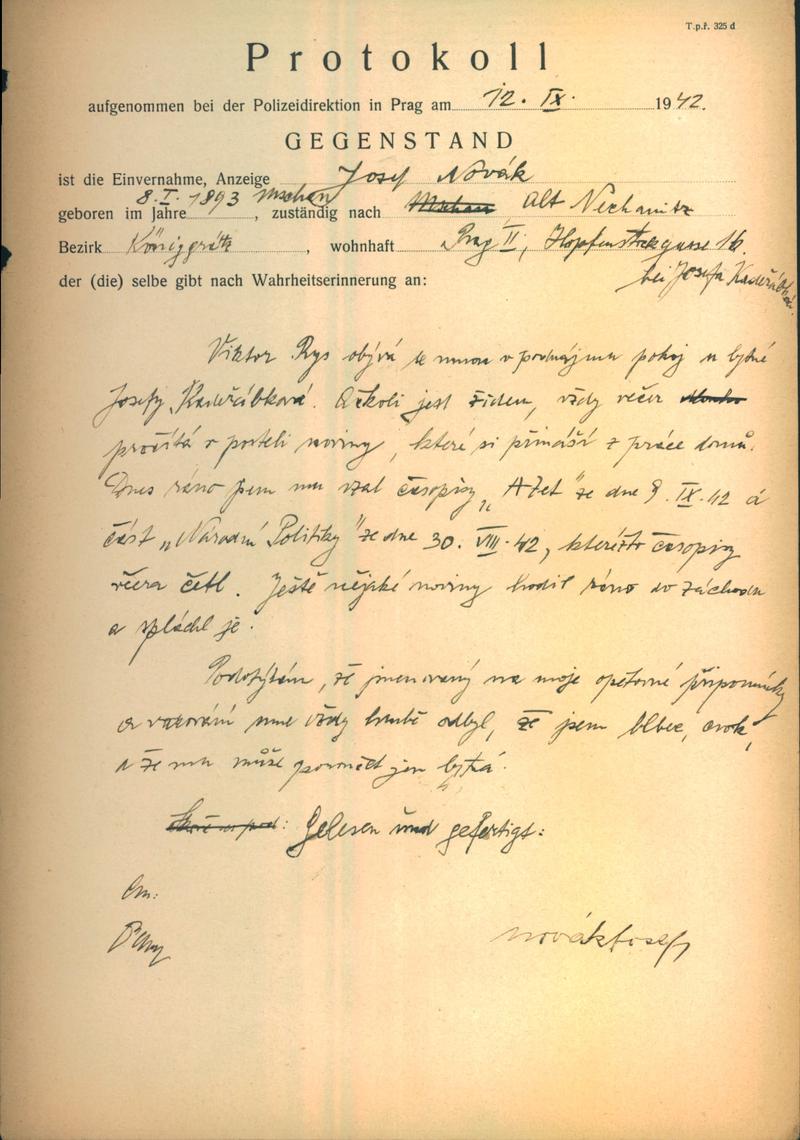 T.p.ř. 325 d
Protokoll
aufgenommen bei der Polizeidirektion in Prag am 12. IX. 1942.
GEGENSTAND
ist die Einvernahme, Anzeige Josef Novák
geboren im Jahre 8. I. 1893 Mschan, zuständig nach Mschan, Alt Nechanitz
Bezirk Königgrätz, wohnhaft Prag II, Hopfenstockgasse 16.
der (die) selbe gibt nach Wahrheitserinnerung an: bei Josefa Kadeřábková.
Viktor Rys obývá se mnou v podnájmu pokoj u bytné
Josefy Kadeřábková. Ačkoli jest židem, vždy večer dlouho
pročítá v posteli noviny, které si přináší z práce domů.
Dnes ráno jsem mu vzal časopisy „A Zet" ze dne 9. IX. 42 a
část „Národní Politiky" ze dne 30. VIII. 42, kteréžto časopisy
včera četl. Ještě nějaké noviny hodil ráno do záchodu
a spláchl je.
Podotýkám, že jmenovaný na moje opětovné připomínky
a varování mne vždy hrubě odbyl, že jsem blbec, cvok,
a že mu může poroučet jen bytná.
Gelesen und gefertigt:
Novák Josef